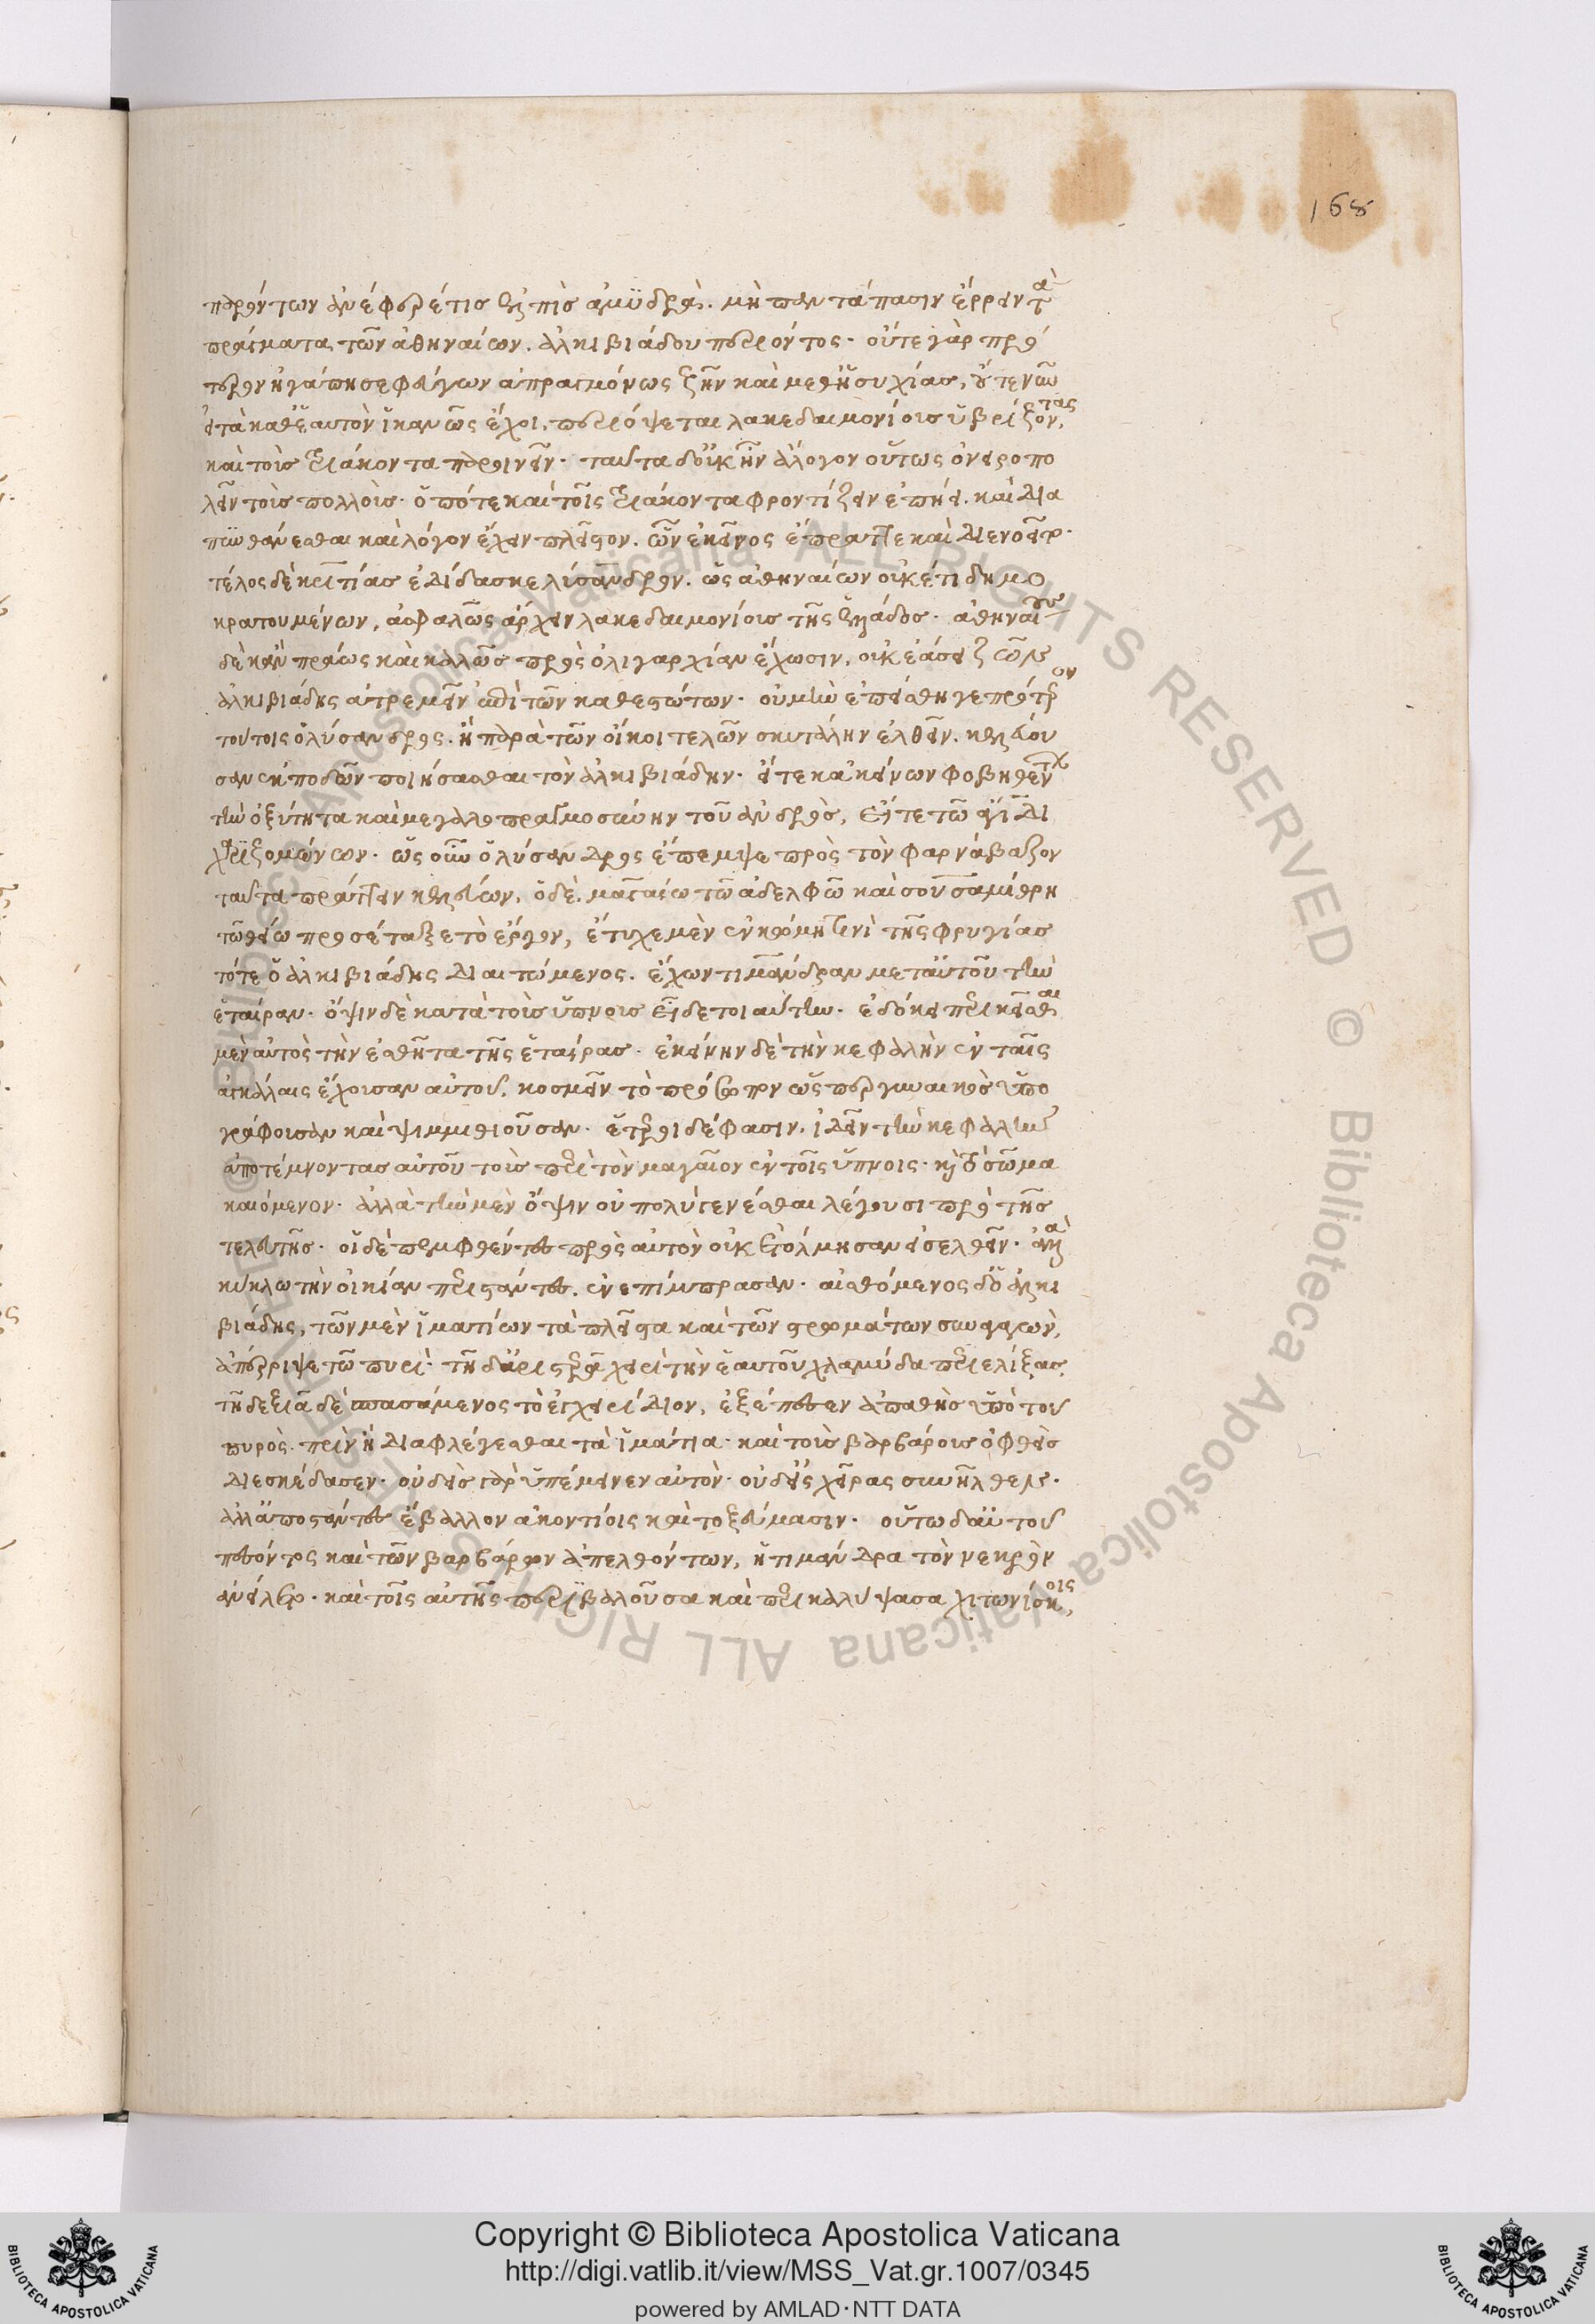 168
παρόντων ἀνέφερέ τις ἐλπὶς ἀμυδρὰ. μὴ παντάπασιν ἔρρειν τὰ
πράγματα τῶν ἀθηναίων. ἀλκιβιάδου περιόντος· οὔτε γὰρ πρό
τερον ἠγάπησε φεύγων ἀπραγμόνως ζῆν καὶ μεθ' ἡσυχίας, οὔτε νῦν
εἰ τὰ καθ' ἑαυτὸν ἱκανῶς ἔχοι, περιόψεται λακεδαιμονίους ὑβρίζοντας,
καὶ τοὺς τριάκοντα παροινεῖν· ταῦτα δ' οὐκ ἦν ἄλογον οὕτως ὀνειροπο
λεῖν τοὺς πολλοὺς· ὁπότε καὶ τοῖς τριάκοντα φροντίζειν ἐπῄει. καὶ δια
πυνθάνεσθαι καὶ λόγον ἔχειν πλεῖστον. ὧν ἐκεῖνος ἔπραττε καὶ διενοεῖτο·
τέλος δὲ κριτίας ἐδίδασκε λύσανδρον. ὡς ἀθηναίων οὐκέτι δημο
κρατουμένων, ἀσφαλῶς ἄρχειν λακεδαιμονίοις τῆς ἑλλάδος· ἀθηναίους
δὲ κἂν πράως καὶ καλῶς πρὸς ὀλιγαρχίαν ἔχωσιν, οὐκ ἐάσει ζῶν
ἀλκιβιάδης ἀτρεμεῖν ἐπὶ τῶν καθεστώτων· οὐ μὴν ἐπείσθη γε πρότερον
τούτοις ὁ λύσανδρος. ἢ παρὰ τῶν οἴκοι τελῶν σκυτάλην ἐλθεῖν. κελεύου
σαν ἐκποδὼν ποιήσασθαι τὸν ἀλκιβιάδην· εἴτε κἀκείνων φοβηθέντων
τὴν ὀξύτητα καὶ μεγαλοπραγμοσύνην τοῦ ἀνδρὸς, εἴτε τῷ ἄγιδι
χαριζομένων. ὡς οὖν ὁ λύσανδρος ἔπεμψε πρὸς τὸν φαρνάβαζον
ταῦτα πράττειν κελεύων, ὁ δὲ. μαγαίῳ τῷ ἀδελφῷ καὶ σουσαμίθρῃ
τῷ θείῳ προσέταξε τὸ ἔργον, ἔτυχε μὲν ἐν κώμῃ τινὶ τῆς φρυγίας
τότε ὁ ἀλκιβιάδης διαιτώμενος. ἔχων τιμάνδραν μεθ' αὑτοῦ τὴν
ἑταίραν· ὄψιν δὲ κατὰ τοὺς ὕπνους εἶδε τοιαύτην· ἐδόκει περικεῖσθαι
μὲν αὐτὸς τὴν ἐσθῆτα τῆς ἑταίρας· ἐκείνην δὲ τὴν κεφαλὴν ἐν ταῖς
ἀγκάλαις ἔχουσαν αὐτοῦ, κοσμεῖν τὸ πρόσωπον ὥσπερ γυναικὸς ὑπο
γράφουσαν καὶ ψιμμιθιοῦσαν· ἕτεροι δέ φασιν, ἰδεῖν τὴν κεφαλὴν
ἀποτέμνοντας αὐτοῦ τοὺς περὶ τὸν μαγαῖον ἐν τοῖς ὕπνοις· καὶ τὸ σῶμα
καιόμενον· ἀλλὰ τὴν μὲν ὄψιν οὐ πολὺ γενέσθαι λέγουσι πρὸ τῆς
τελευτῆς· οἱ δὲ πεμφθέντες πρὸς αὐτὸν οὐκ ἐτόλμησαν εἰσελθεῖν· ἀλλὰ
κύκλῳ τὴν οἰκίαν περιστάντες. ἐνεπίμπρασαν· αἰσθόμενος δ' ὁ ἀλκι
βιάδης, τῶν μὲν ἱματίων τὰ πλεῖστα καὶ τῶν στρωμάτων συναγαγὼν,
ἀπέρριψε τῷ πυρὶ· τῇ δ' ἀριστερᾷ χειρὶ τὴν ἑαυτοῦ χλαμύδα περιελίξας,
τῇ δεξιᾷ δὲ σπασάμενος τὸ ἐγχειρίδιον, ἐξέπεσεν ἀπαθὴς ὑπὸ τοῦ
πυρὸς· πρὶν ἢ διαφλέγεσθαι τὰ ἱμάτια· καὶ τοὺς βαρβάρους ὀφθεὶς
διεσκέδασεν· οὐδεὶς γὰρ ὑπέμεινεν αὐτὸν· οὐδ' εἰς χεῖρας συνῆλθεν·
ἀλλ' ἀποστάντες ἔβαλλον ἀκοντίοις καὶ τοξεύμασιν· οὕτω δ' αὐτοῦ
πεσόντος καὶ τῶν βαρβάρων ἀπελθόντων, ἡ τιμάνδρα τὸν νεκρὸν
ἀνείλετο· καὶ τοῖς αὐτῆς περιβαλοῦσα καὶ περικαλύψασα χιτωνίσκοις,
Copyright © Biblioteca Apostolica Vaticana
http://digi.vatlib.it/view/MSS_Vat.gr.1007/0345
powered by AMLAD·NTT DATA
BIBLIOTECA APOSTOLICA VATICANA
BIBLIOTECA APOSTOLICA VATICANA
© Biblioteca Apostolica Vaticana ALL RIGHTS RESERVED © Biblioteca Apostolica Vaticana ALL RIGHTS RESERVED